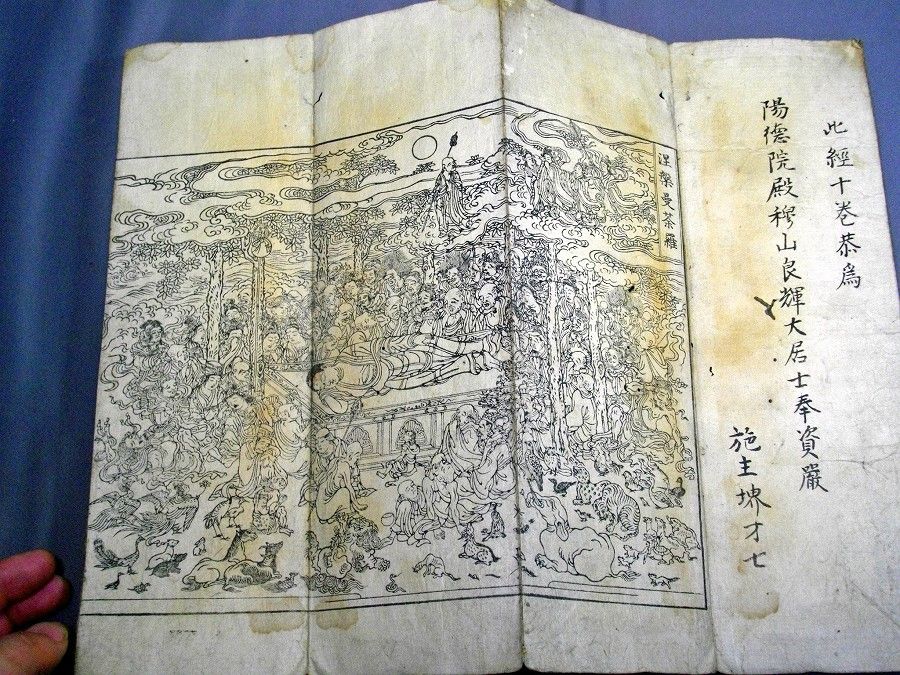 此經十巻恭爲
陽德院殿穆山良輝大居士奉資嚴
施主 才七
涅槃曼荼羅